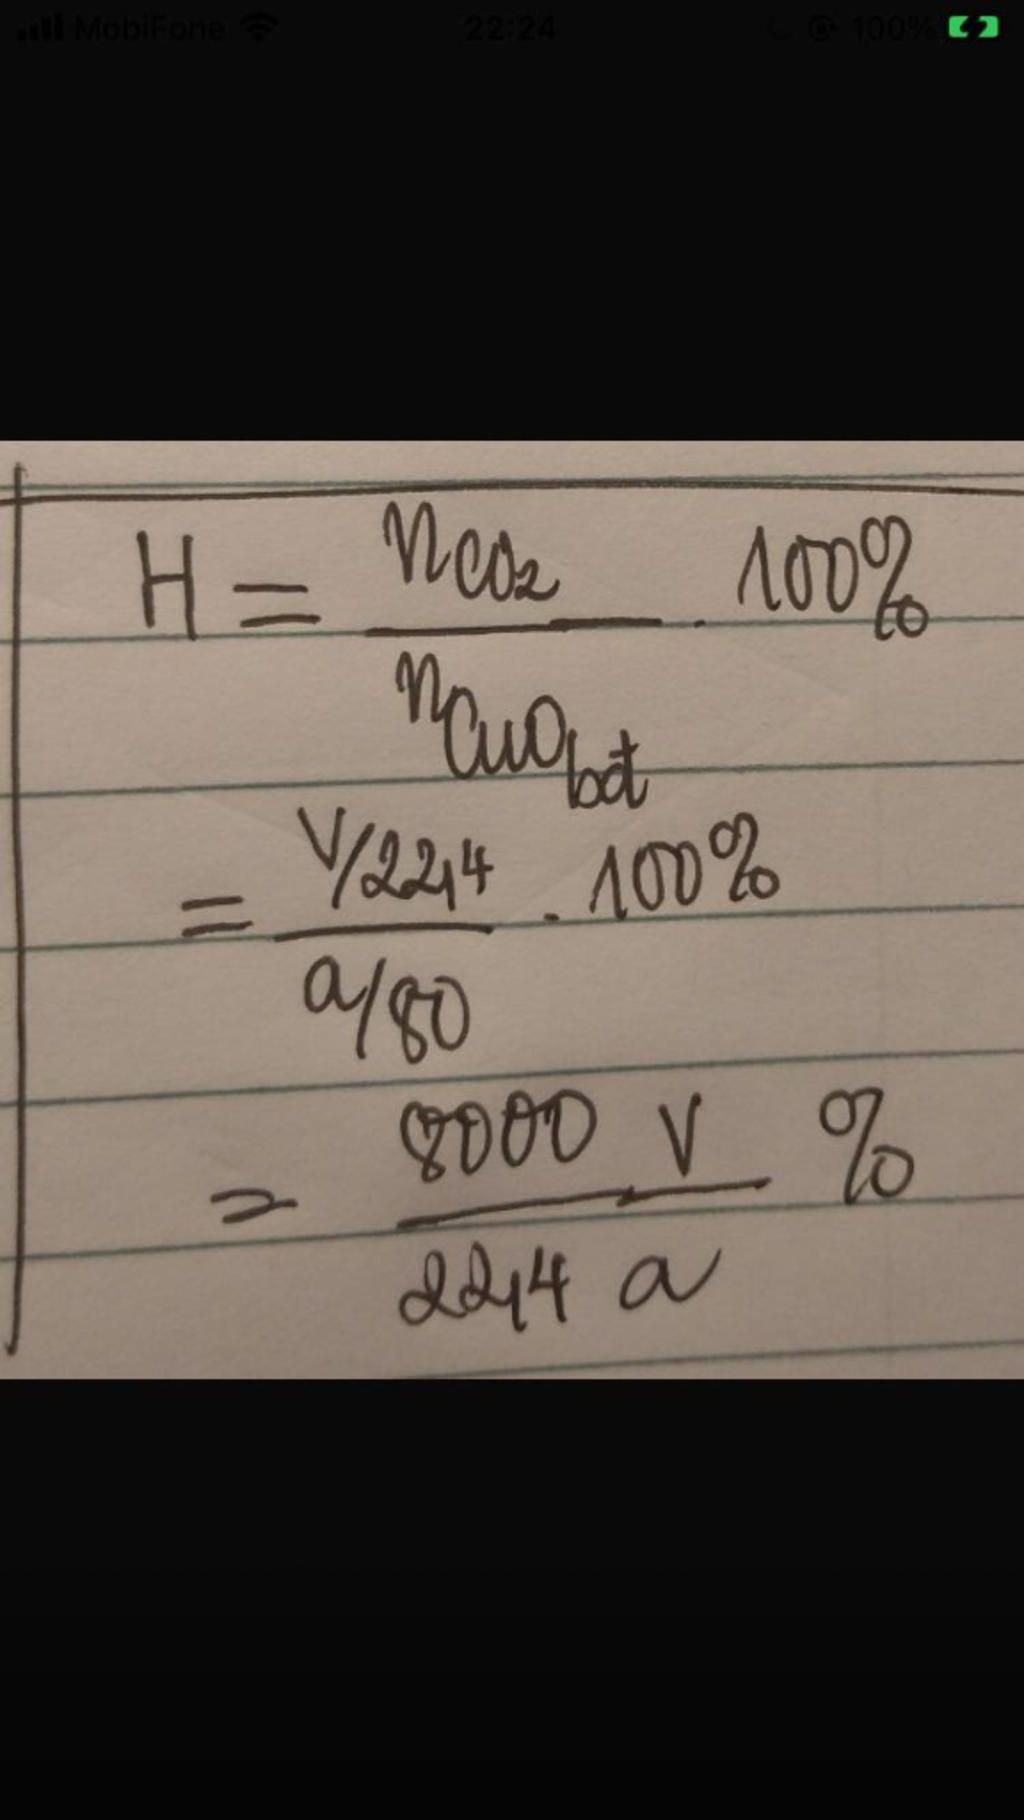 MobiFone 22:24 100%
H = nCO2 / nCuO bđ . 100%
= V/22,4 / a/80 . 100%
= 8000 V / 22,4 a %